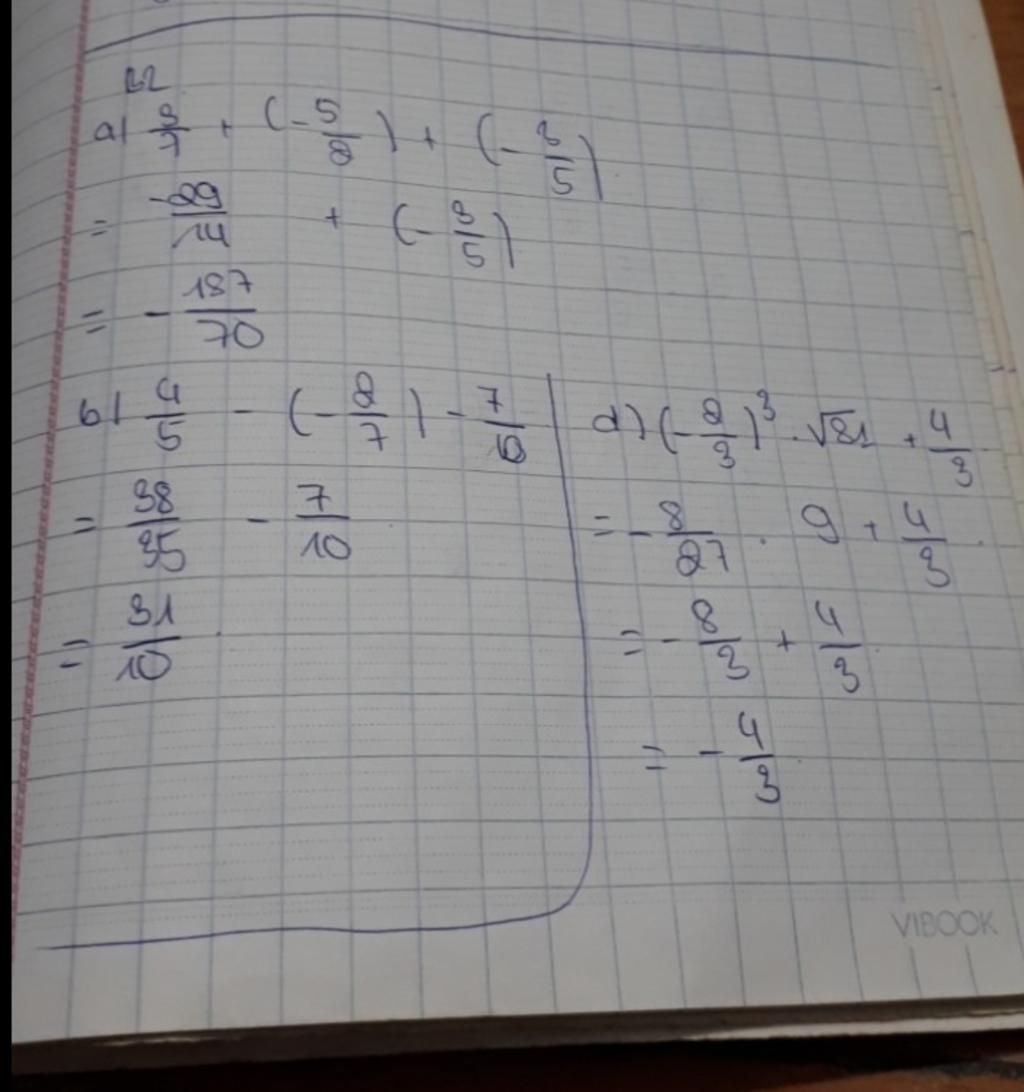 B2
a) 3/7 + (-5/2) + (-3/5)
= -29/14 + (-3/5)
= -187/70
b) 4/5 - (-2/7) - 7/10
= 38/35 - 7/10
= 31/10
d) (-2/3)³ . √81 + 4/3
= -8/27 . 9 + 4/3
= -8/3 + 4/3
= -4/3
VIBOOK